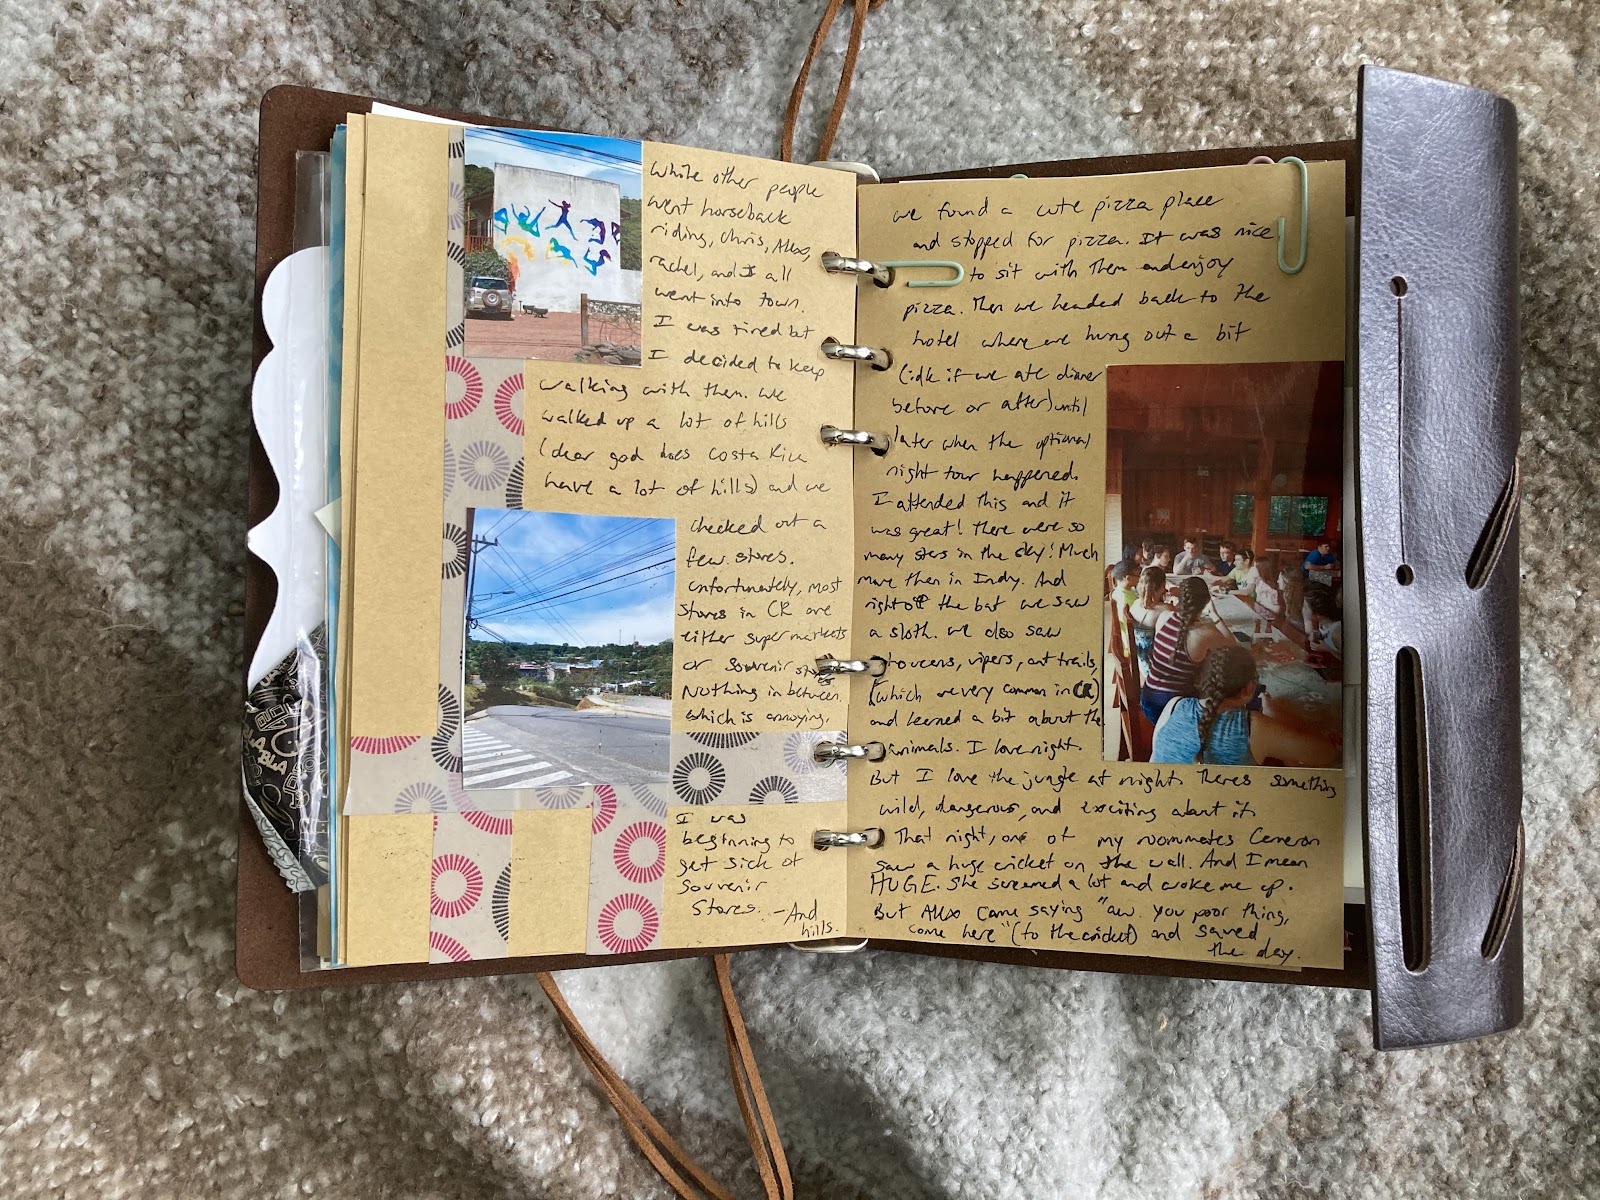 While other people
went horseback
riding, Chris, Alexo,
rachel, and I all
went into town.
I was tired but
I decided to keep
walking with them. We
walked up a lot of hills
(dear god does Costa Rica
have a lot of hills) and we
checked out a
few stores.
unfortunately, most
stores in CR are
either supermarkets
or souvenir stores
Nothing in between.
which is annoying.
I was
beginning to
get sick of
souvenir
stores. - And
hills.
we found a cute pizza place
and stopped for pizza. It was nice
to sit with them and enjoy
pizza. Then we headed back to the
hotel where we hung out a bit
(idk if we ate dinner
before or after) until
later when the optional
night tour happened.
I attended this and it
was great! There were so
many stars in the sky! Much
more than in Indy. And
right off the bat we saw
a sloth. we also saw
toucens, vipers, ant trails,
(which are very common in CR)
and learned a bit about the
animals. I love night.
But I love the jungle at night. Theres something
wild, dangerous, and exciting about it.
That night, one of my roommates Cameron
saw a huge cricket on the wall. And I mean
HUGE. She screamed a lot and woke me up.
But Alexo came saying "aw you poor thing,
come here" (to the cricket) and saved
the day.
BLA BLA